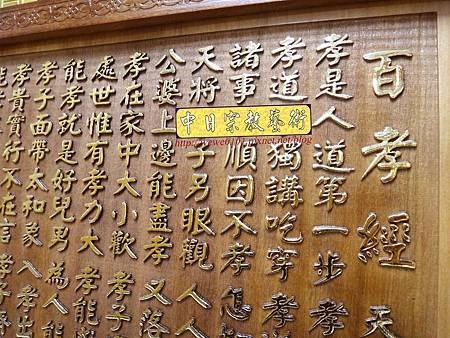 百孝經 天
孝是人道第一步 孝
孝道 獨講吃穿 孝
諸事 順因不孝 怎
天將 子另眼觀 人人
公婆上邊能盡孝 又落
孝在家中大小歡 孝子
處世惟有孝力大 孝能
能孝就是好兒男 為人
孝子面帶太和象 入孝出
孝貴實行不在言 孝子
中日宗教藝術